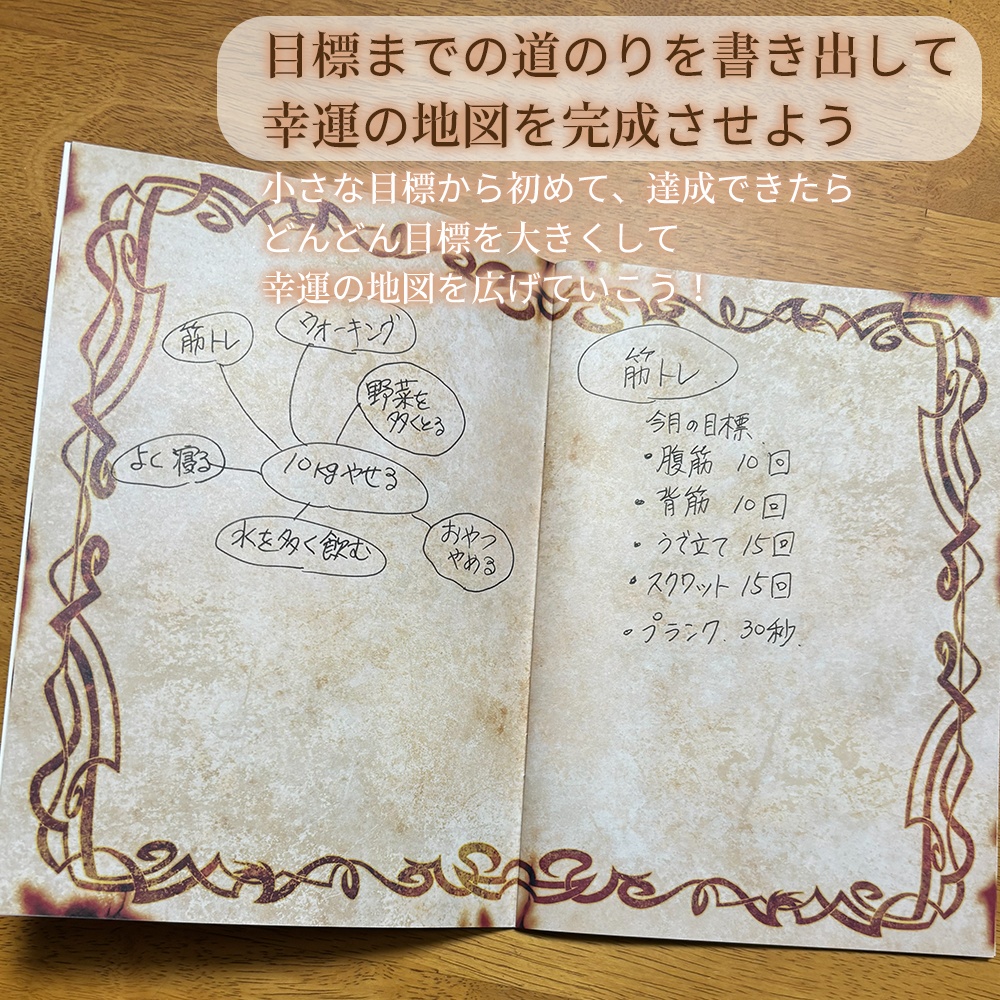 目標までの道のりを書き出して
幸運の地図を完成させよう
小さな目標から初めて、達成できたら
どんどん目標を大きくして
幸運の地図を広げていこう！
筋トレ
ウオーキング
野菜を
多くとる
よく寝る
10kgやせる
水を多く飲む
おやつ
やめる
筋トレ.
今月の目標
・腹筋 10回
・背筋 10回
・うで立て 15回
・スクワット 15回
・プランク. 30秒.